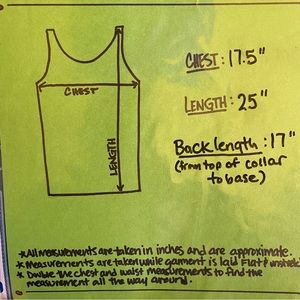 CHEST: 17.5"
CHEST
LENGTH: 25"
LENGTH
Back length: 17"
(from top of collar
to base)
*All measurements are taken in inches and are approximate.
*Measurements are taken while garment is laid Flat & unstretc
* Double the chest and waist measurements to find the
measurement all the way around.